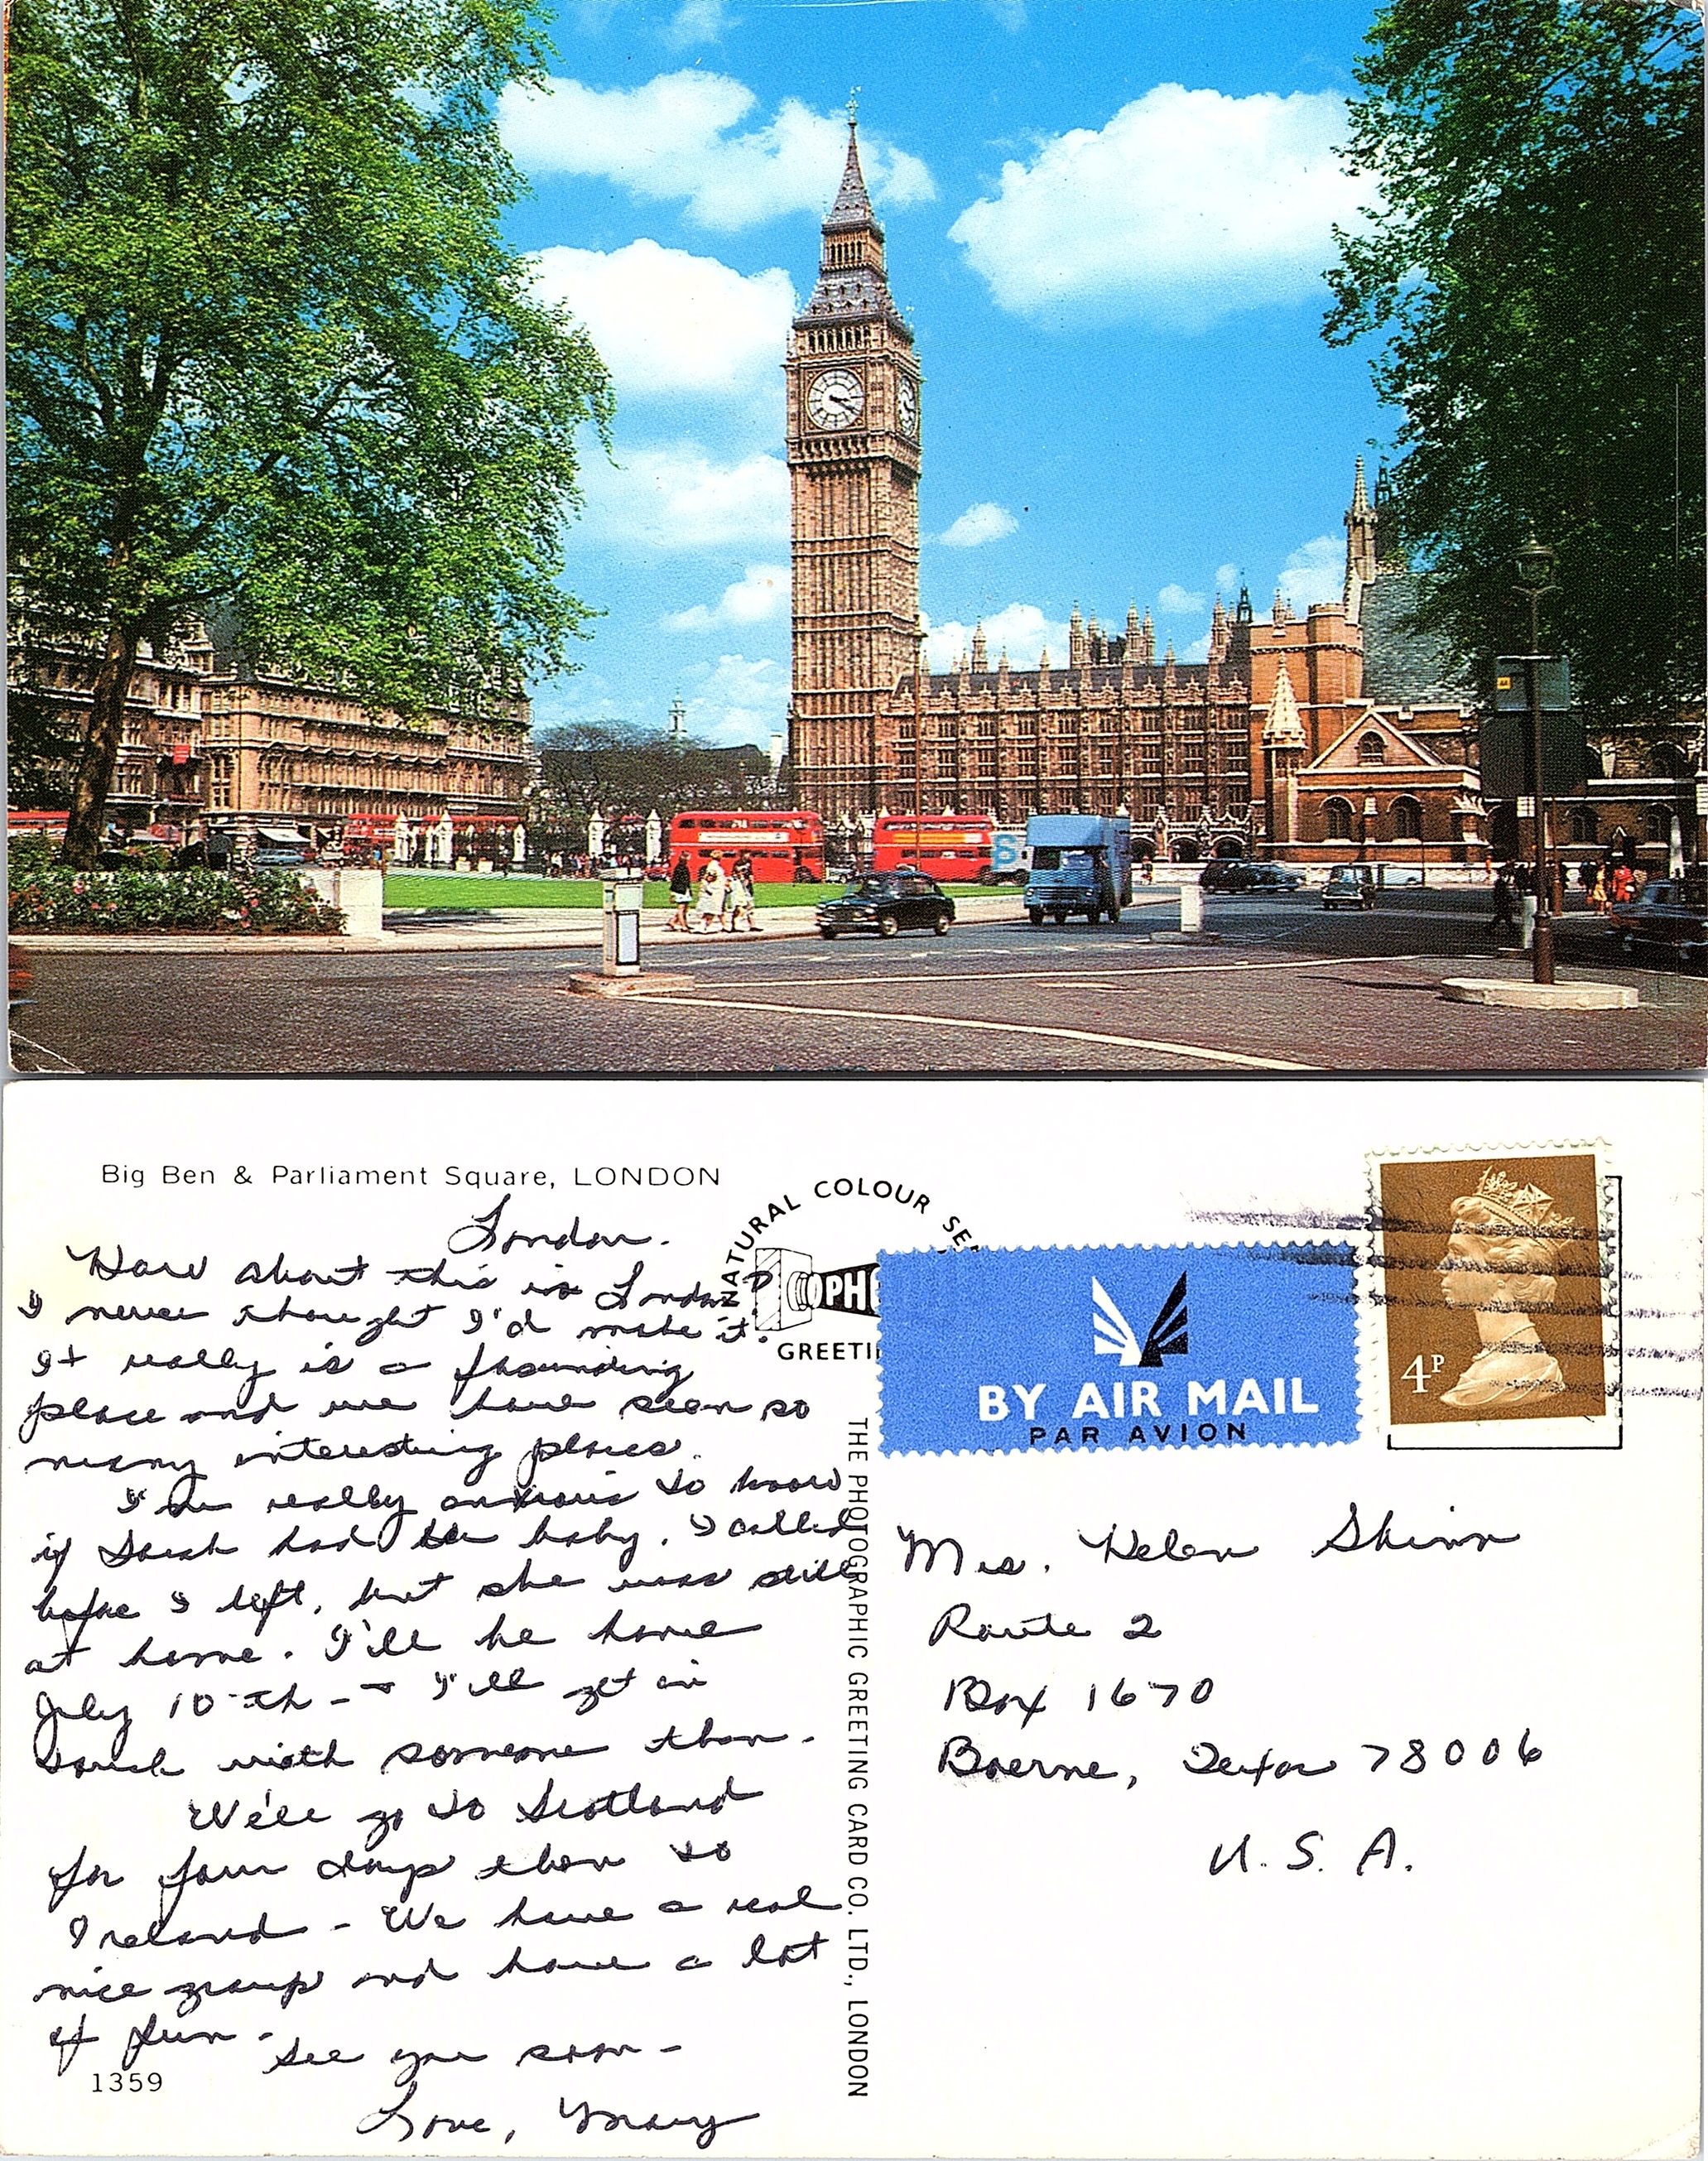 Big Ben & Parliament Square, LONDON
London.
How about this in London?
I never thought I'd make it.
It really is a
place and we have seen so
many interesting places.
I'm really anxious to know
if Sarah had the baby. I called
before I left, but she was still
at home. I'll be home
July 10th - I'll get in
touch with someone then.
We'll go to Scotland
for four days then to
Ireland - We have a real
nice group and have a lot
of fun -
See you soon -
Love, Mary
1359
NATURAL COLOUR
GREETI
THE PHOTOGRAPHIC GREETING CARD CO. LTD., LONDON
BY AIR MAIL
PAR AVION
4P
Mrs. Helen Skinn
Route 2
Box 1670
Boerne, Texas 78006
U. S. A.